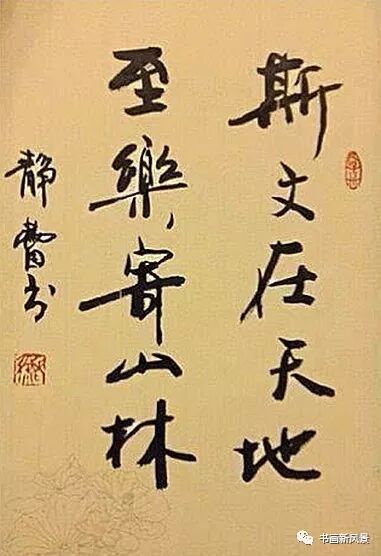 斯文在天地
至樂寄山林
静書
书画新风景